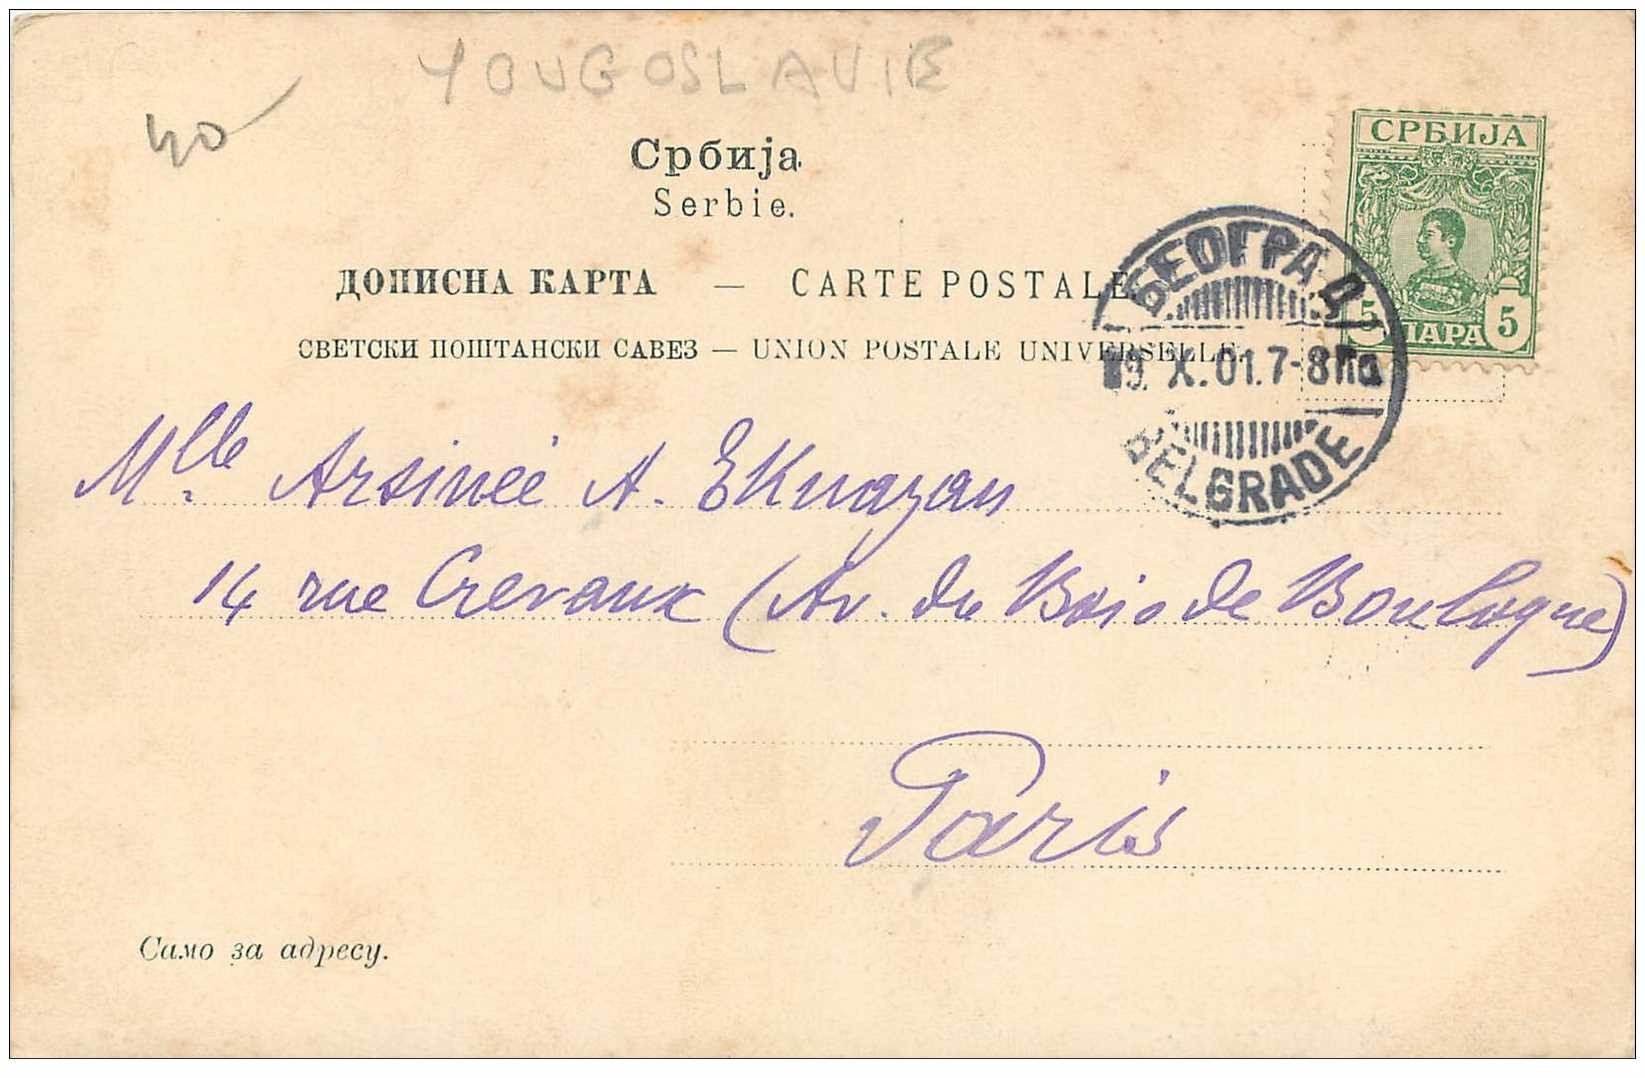 YOUGOSLAVIE
40
Србија
Serbie.
СРБИЈА
ДОПИСНА КАРТА — CARTE POSTALE
СВЕТСКИ ПОШТАНСКИ САВЕЗ — UNION POSTALE UNIVERSELLE
5 ПАРА 5
БЕОГРАД
9. X. 01. 7-8
BELGRADE
Mlle Arsinée A. Eknayan
14 rue Crevaux (Av. du Bois de Boulogne)
Paris
Само за адресу.